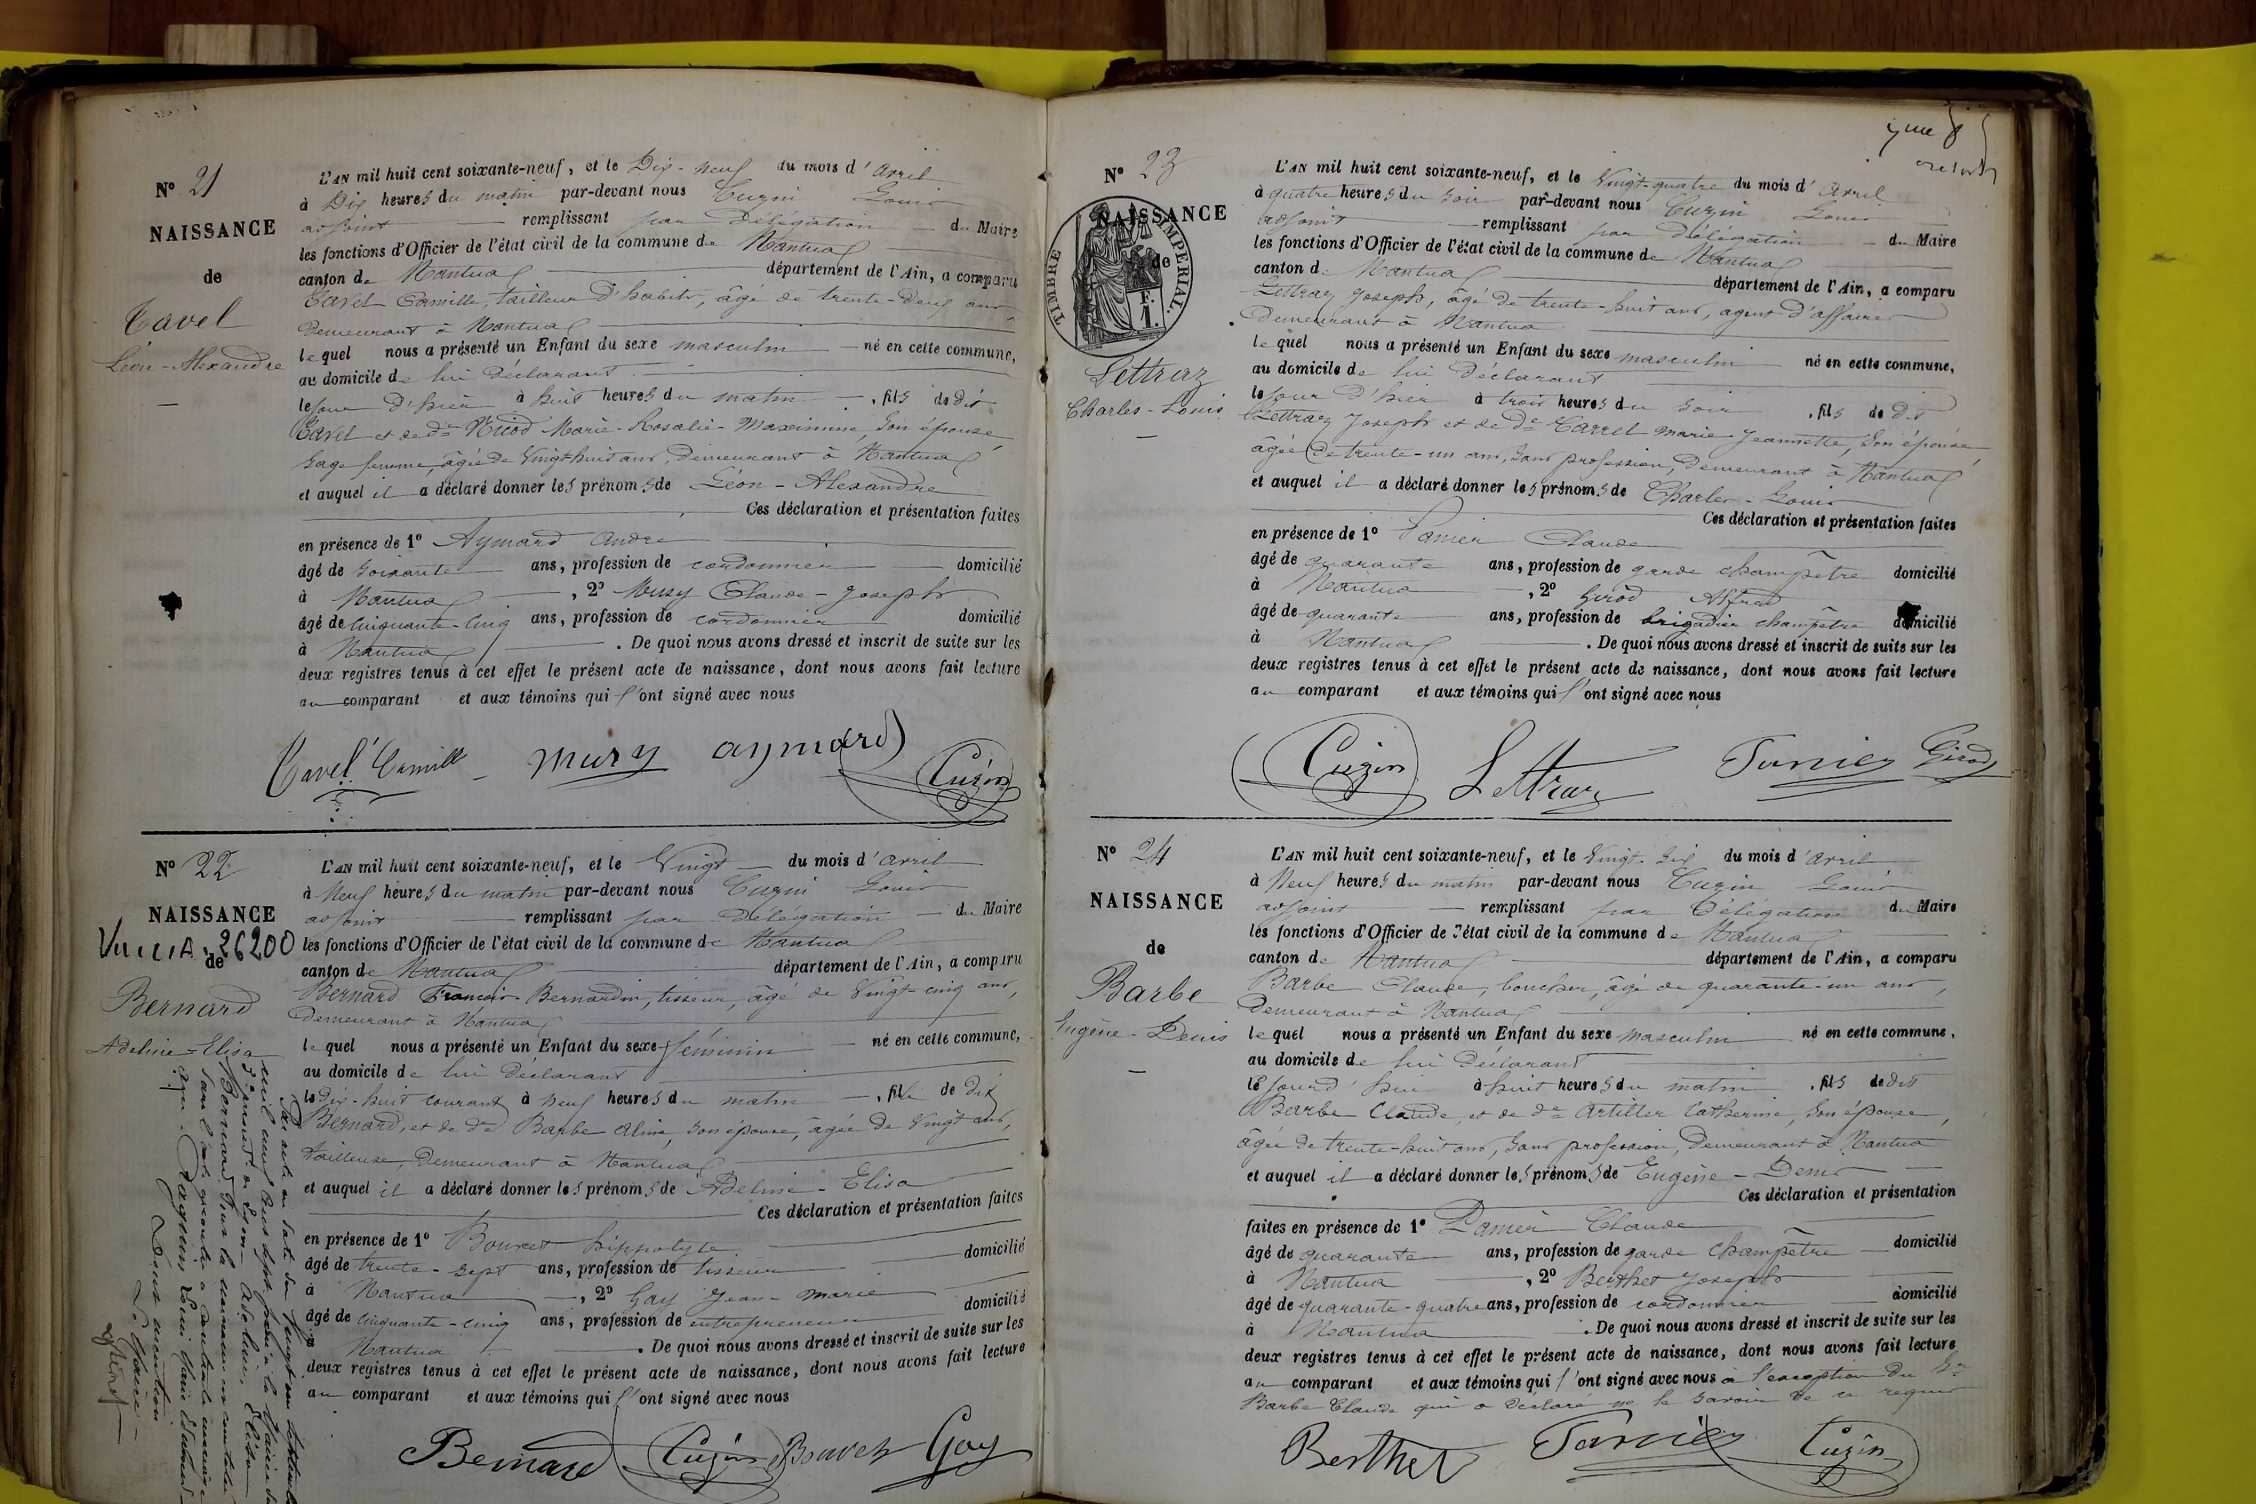 N° 21
NAISSANCE
de
Tavel
Léon-Alexandre
L'AN mil huit cent soixante-neuf, et le Dix-neuf du mois d'avril
à Dix heures du matin par-devant nous Cuzin Louis
adjoint remplissant par Délégation du Maire
les fonctions d'Officier de l'état civil de la commune de Nantua
canton de Nantua département de l'Ain, a comparu
Tavel Camille, tailleur d'habits, âgé de trente-deux ans,
demeurant à Nantua
lequel nous a présenté un Enfant du sexe masculin né en cette commune,
au domicile de lui déclarant
le jour d'hier à huit heures du matin, fils de dit
Tavel et de de Nicod Marie-Rosalie-Maximine, son épouse,
sage femme, âgée de vingt huit ans, demeurant à Nantua
et auquel il a déclaré donner les prénoms de Léon-Alexandre
Ces déclaration et présentation faites
en présence de 1° Aymard André
âgé de soixante ans, profession de cordonnier domicilié
à Nantua, 2° Mury Claude-Joseph
âgé de cinquante-cinq ans, profession de cordonnier domicilié
à Nantua. De quoi nous avons dressé et inscrit de suite sur les
deux registres tenus à cet effet le présent acte de naissance, dont nous avons fait lecture
au comparant et aux témoins qui l'ont signé avec nous
Tavel Camille mury aymard Cuzin
N° 22
NAISSANCE
de
26200
Bernard
Adeline-Elisa
L'AN mil huit cent soixante-neuf, et le Vingt du mois d'avril
à Neuf heures du matin par-devant nous Cuzin Louis
adjoint remplissant par Délégation du Maire
les fonctions d'Officier de l'état civil de la commune de Nantua
canton de Nantua département de l'Ain, a comparu
Bernard François-Bernardin, tisseur, âgé de vingt-cinq ans,
demeurant à Nantua
lequel nous a présenté un Enfant du sexe féminin né en cette commune,
au domicile de lui déclarant
le dix-huit courant à neuf heures du matin, fille de dit
Bernard, et de de Barbe Aline, son épouse, âgée de vingt ans,
tailleuse, demeurant à Nantua
et auquel il a déclaré donner les prénoms de Adeline-Elisa
Ces déclaration et présentation faites
en présence de 1° Bouvet hippolyte
âgé de trente-sept ans, profession de tisseur domicilié
à Nantua, 2° Gay Jean-Marie
âgé de cinquante-cinq ans, profession de entrepreneur domicilié
à Nantua. De quoi nous avons dressé et inscrit de suite sur les
deux registres tenus à cet effet le présent acte de naissance, dont nous avons fait lecture
au comparant et aux témoins qui l'ont signé avec nous
Bernard Cuzin Bouvet Gay
N° 23
NAISSANCE
de
TIMBRE IMPERIAL.
F.
1.
Lettraz
Charles-Louis
L'AN mil huit cent soixante-neuf, et le Vingt-quatre du mois d'avril
à quatre heures du soir par-devant nous Cuzin Louis
adjoint remplissant par Délégation du Maire
les fonctions d'Officier de l'état civil de la commune de Nantua
canton de Nantua département de l'Ain, a comparu
Lettraz Joseph, âgé de trente-huit ans, agent d'affaires
demeurant à Nantua
lequel nous a présenté un Enfant du sexe masculin né en cette commune,
au domicile de lui déclarant
le jour d'hier à trois heures du soir, fils de dit
Lettraz Joseph et de de Carrel Marie-Jeannette, son épouse,
âgée de trente-un ans, sans profession, demeurant à Nantua
et auquel il a déclaré donner les prénoms de Charles-Louis
Ces déclaration et présentation faites
en présence de 1° Panier Claude
âgé de quarante ans, profession de garde champêtre domicilié
à Nantua, 2° Girod Alfred
âgé de quarante ans, profession de brigadier champêtre domicilié
à Nantua. De quoi nous avons dressé et inscrit de suite sur les
deux registres tenus à cet effet le présent acte de naissance, dont nous avons fait lecture
au comparant et aux témoins qui l'ont signé avec nous
Cuzin Lettraz Panier Girod
N° 24
NAISSANCE
de
Barbe
Eugène-Denis
L'AN mil huit cent soixante-neuf, et le Vingt-six du mois d'avril
à Neuf heures du matin par-devant nous Cuzin Louis
adjoint remplissant par Délégation du Maire
les fonctions d'Officier de l'état civil de la commune de Nantua
canton de Nantua département de l'Ain, a comparu
Barbe Claude, boucher, âgé de quarante-un ans,
demeurant à Nantua
lequel nous a présenté un Enfant du sexe masculin né en cette commune,
au domicile de lui déclarant
le jour d'hier à huit heures du matin, fils de dit
Barbe Claude, et de de Artiller Catherine, son épouse,
âgée de trente-huit ans, sans profession, demeurant à Nantua
et auquel il a déclaré donner les prénoms de Eugène-Denis
Ces déclaration et présentation
faites en présence de 1° Panier Claude
âgé de quarante ans, profession de garde champêtre domicilié
à Nantua, 2° Berthet Joseph
âgé de quarante-quatre ans, profession de cordonnier domicilié
à Nantua. De quoi nous avons dressé et inscrit de suite sur les
deux registres tenus à cet effet le présent acte de naissance, dont nous avons fait lecture
au comparant et aux témoins qui l'ont signé avec nous à l'exception du Sr
Barbe Claude qui a déclaré ne le savoir de ce requis
Berthet Panier Cuzin